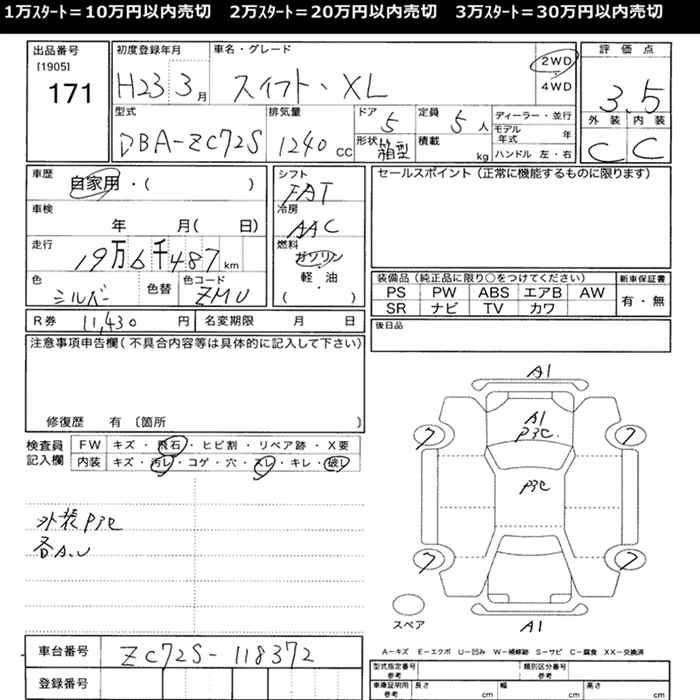 1万スタート＝10万円以内売切　2万スタート＝20万円以内売切　3万スタート＝30万円以内売切
出品番号
[1905]
171
初度登録年月
H23 3月
車名・グレード
スイフト・XL
2WD
4WD
評価点
3.5
外装 内装
C C
型式
DBA-ZC72S
排気量
1240 CC
ドア
5
定員
5人
形状
箱型
積載
kg
ディーラー・並行
モデル年式 年
ハンドル 左・右
車歴
自家用・( )
車検
年 月( 日)
走行
19万6千487 km
色
シルバー
色替
色コード
ZMU
シフト
FAT
冷房
AAC
燃料
ガソリン
軽・油
( ・ )
セールスポイント(正常に機能するものに限ります)
装備品(純正品に限り○をつけてください)
PS PW ABS エアB AW
SR ナビ TV カワ
新車保証書
有・無
R券 11,430 円
名変期限 月 日
後日品
注意事項申告欄(不具合内容等は具体的に記入して下さい)
修復歴 有 〔箇所 〕
検査員
記入欄
FW キズ・飛石・ヒビ割・リペア跡・X要
内装 キズ・汚レ・コゲ・穴・スレ・キレ・破レ
外装P3C
各A.U
A1
A1
P3C.
P3C
7 7
7 7
A1
スペア
A－キズ E－エクボ U－凹み W－補修跡 S－サビ C－腐食 XX－交換済
車台番号 ZC72S-118372
登録番号
型式指定番号
参考
類別区分番号
参考
車庫証明用
参考
長さ cm
幅 cm
高さ cm